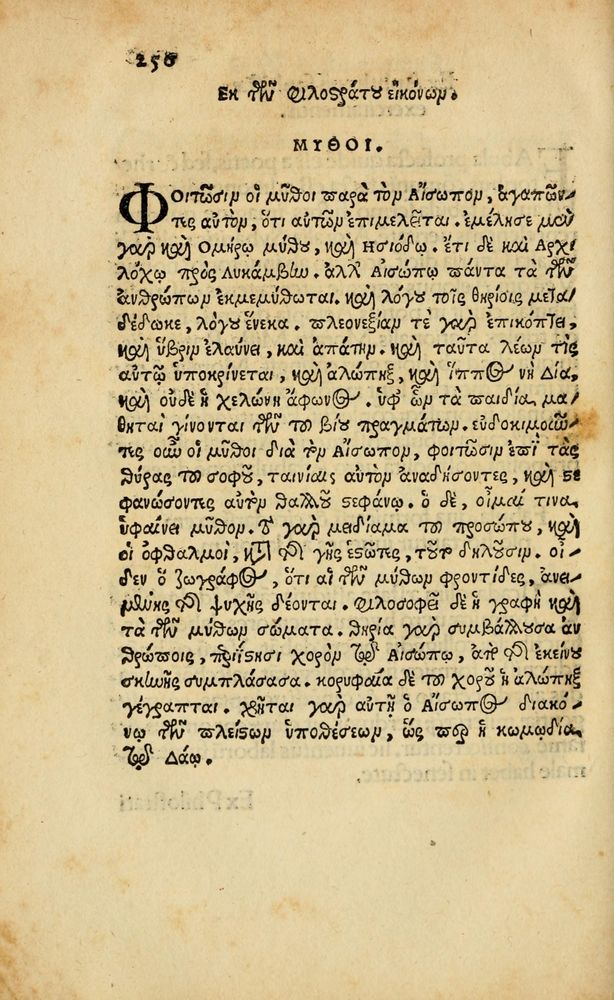 250
Εκ τῶν Φιλοστράτου εἰκόνων.
ΜΥΘΟΙ.
ΦΟιτῶσιν οἱ μῦθοι παρὰ τὸν Αἴσωπον, ἀγαπῶν
τες αὐτὸν, ὅτι αὐτῶν ἐπιμελεῖται. ἐμέλησε μὲν
γὰρ καὶ Ομήρῳ μύθου, καὶ Ησιόδῳ. ἔτι δὲ καὶ Αρχι
λόχῳ πρὸς Λυκάμβην. ἀλλ' Αἰσώπῳ πάντα τὰ τῶν
ἀνθρώπων ἐκμεμύθωται. καὶ λόγου τοῖς θηρίοις μετα
δέδωκε, λόγου ἕνεκα. πλεονεξίαν τὲ γὰρ ἐπικόπτει,
καὶ ὕβριν ἐλαύνει, καὶ ἀπάτην. καὶ ταῦτα λέων τὶς
αὐτῷ ὑποκρίνεται, καὶ ἀλώπηξ, καὶ ἵππος νὴ Δία,
καὶ οὐδὲ ἡ χελώνη ἄφωνος. ὑφ' ὧν τὰ παιδία μα
θηταὶ γίνονται τῶν τοῦ βίου πραγμάτων. εὐδοκιμοῦν
τες οὖν οἱ μῦθοι διὰ τὸν Αἴσωπον, φοιτῶσιν ἐπὶ τὰς
θύρας τοῦ σοφοῦ, ταινίαις αὐτὸν ἀναδήσοντες, καὶ στε
φανώσοντες αὐτὸν θαλλοῦ στεφάνῳ. ὁ δὲ, οἶμαί τινα
ὑφαίνει μῦθον. τὸ γὰρ μειδίαμα τοῦ προσώπου, καὶ
οἱ ὀφθαλμοὶ, κατὰ τῆς γῆς ἑστῶτες, τοῦτο δηλοῦσιν. οἶ
δεν ὁ ζωγράφος, ὅτι αἱ τῶν μύθων φροντίδες, ἀνει
μένης τῆς ψυχῆς δέονται. Φιλοσοφεῖ δὲ ἡ γραφὴ καὶ
τὰ τῶν μύθων σώματα. θηρία γὰρ συμβάλλουσα ἀν
θρώποις, περιΐστησι χορὸν τῷ Αἰσώπῳ, ἀπὸ τῆς ἐκείνου
σκηνῆς συμπλάσασα. κορυφαία δὲ τοῦ χοροῦ ἡ ἀλώπηξ
γέγραπται. χρῆται γὰρ αὐτῇ ὁ Αἴσωπος διακό
νῳ τῶν πλείστων ὑποθέσεων, ὥς περ ἡ κωμῳδία
τῷ Δάῳ.